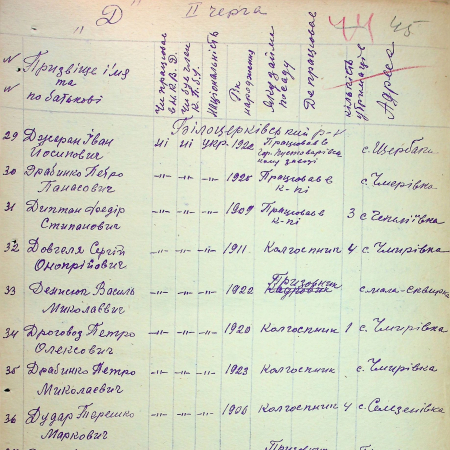 "Д" II черга
44 45
№ № Призвіще ім'я та по батькові Чи працював в Н.К.В.Д. Чи був член К.П.б.У. Національність Рік народження Яку займав посаду Де працював кількість утриманців Адреса
Білоцерківський р-н
29 Джеран Іван Йосипович ні ні укр. 1922 Працював в заводі с. Щербаки
30 Драбинко Петро Панасович -"- -"- -"- 1925 Працював в к-пі с. Чмирівка
31 Диптан Федір Стипанович -"- -"- -"- 1909 Працював в к-пі 3
32 Довгеля Сергій Онопрійович -"- -"- -"- 1911 Колгоспник 4 с. Чмирівка
33 Денисюк Василь Миколаєвич -"- -"- -"- 1922 Призовник с. мала-Сквирка
34 Дроговоз Петро Олексович -"- -"- -"- 1920 Колгоспник 1 с. Чмирівка
35 Драбинко Петро Миколаєвич -"- -"- -"- 1923 Колгоспник с. Чмирівка
36 Дудар Терешко Маркович -"- -"- -"- 1906 Колгоспник 4 с. Селезенівка